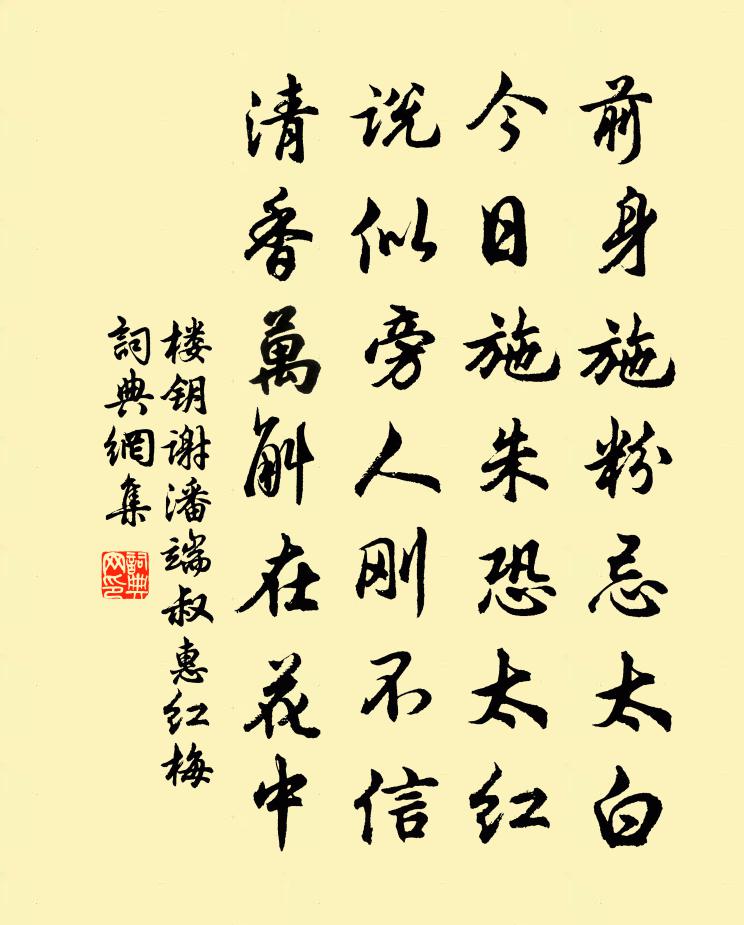 前身施粉忌太白
今日施朱恐太红
说似旁人刚不信
清香萬斛在花中
楼钥谢潘端叔惠红梅
詞典網集
詞典
网印